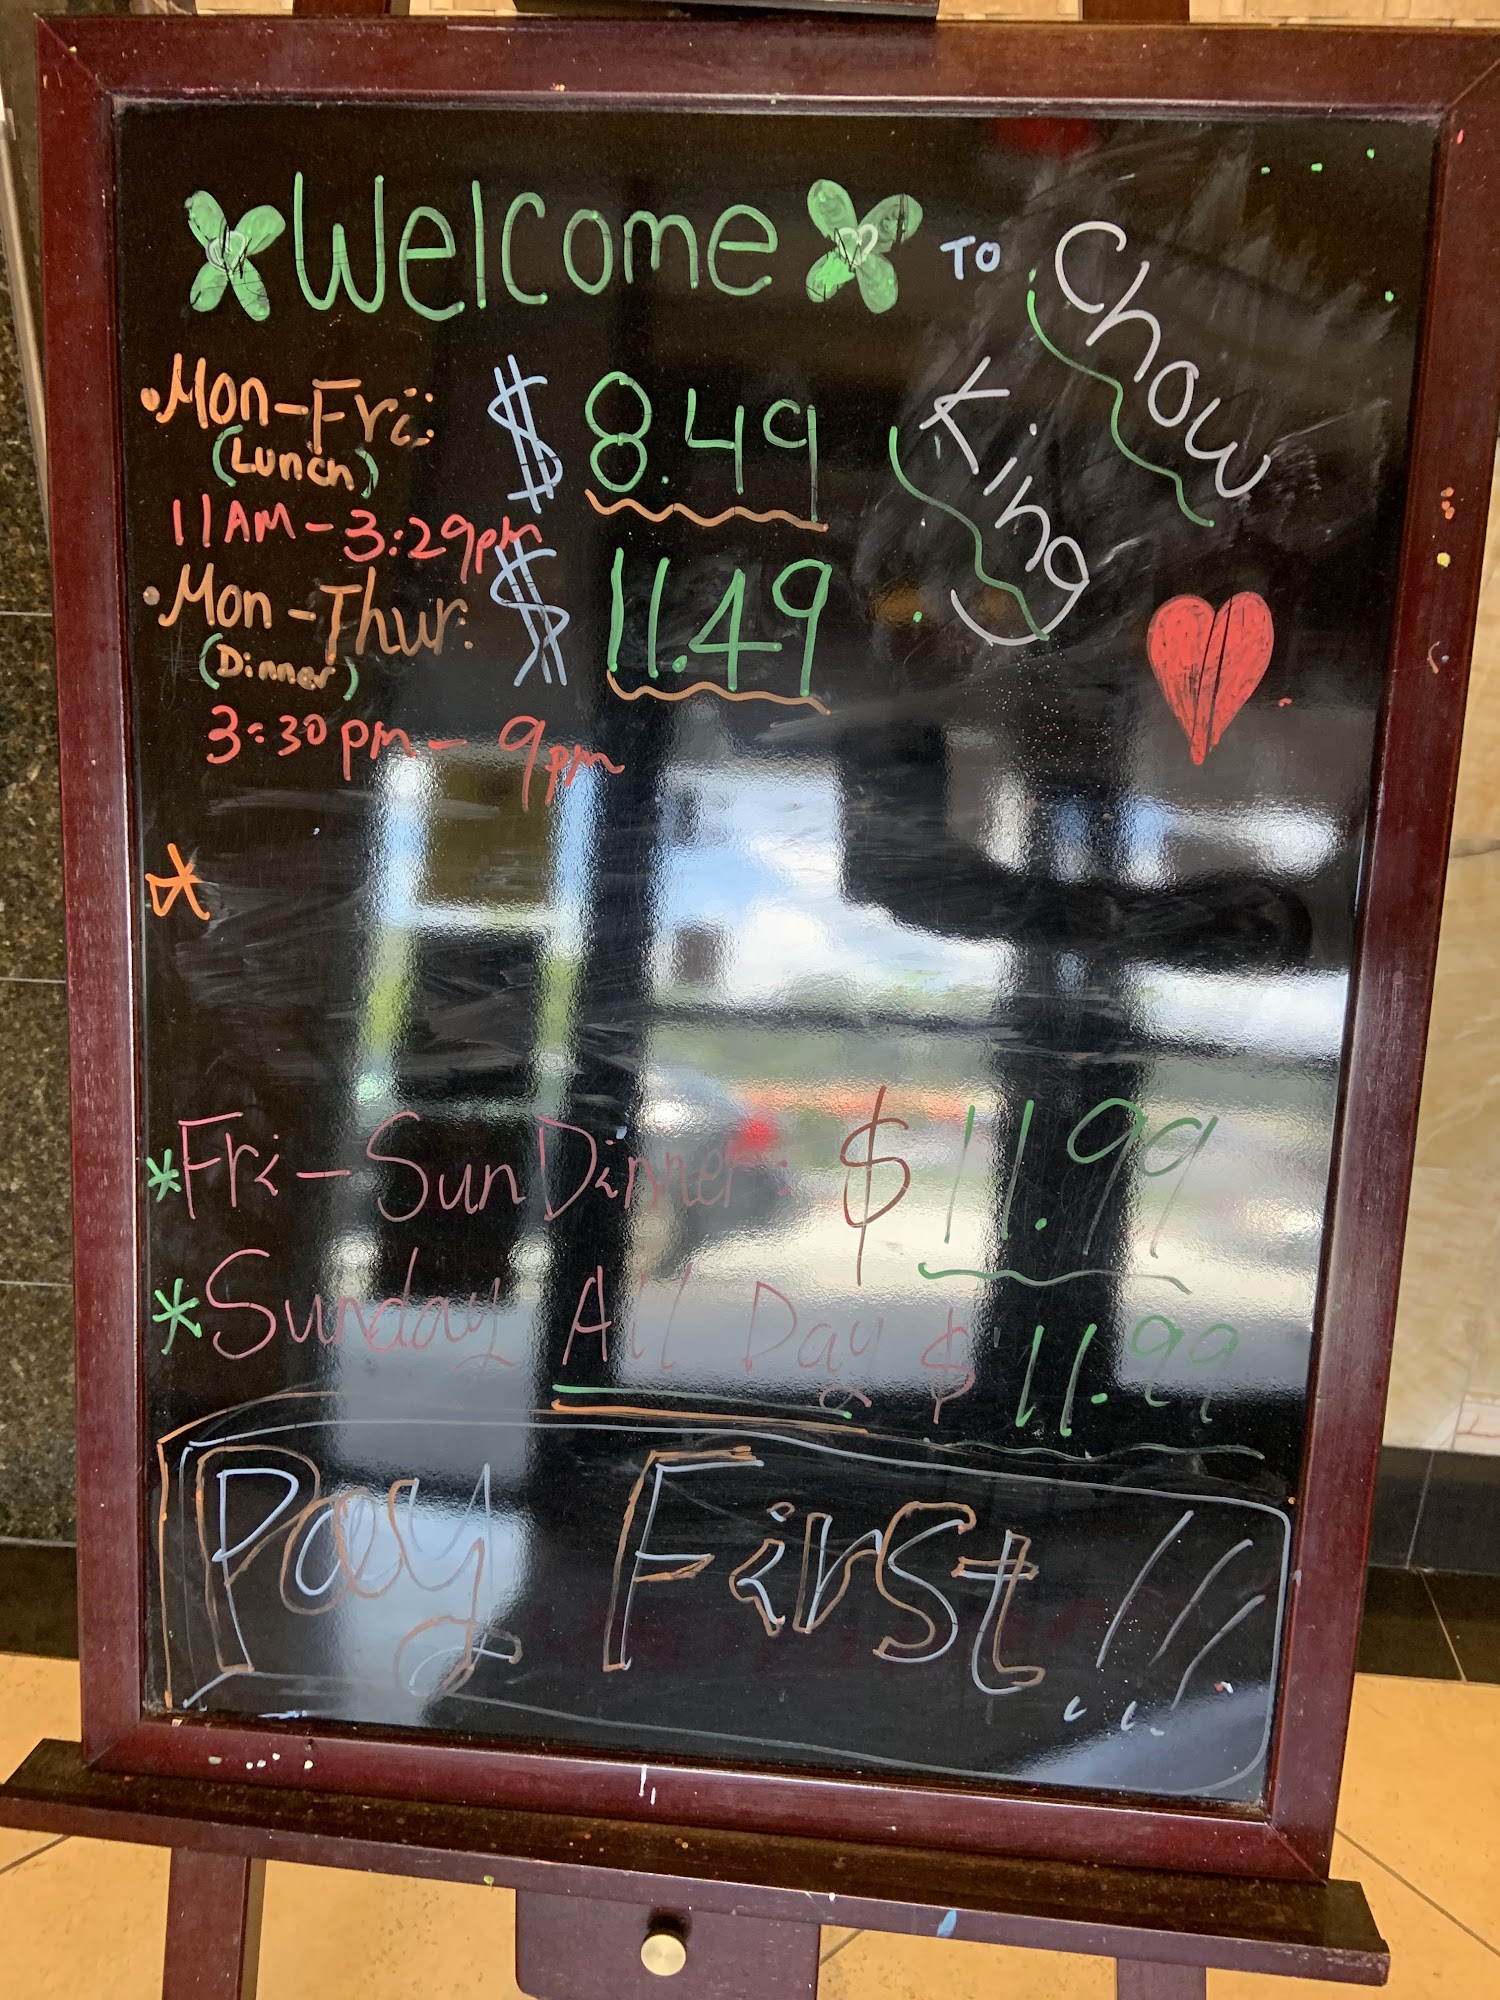 Welcome TO Chow
King
•Mon-Fri: $ 8.49
(Lunch)
11AM-3:29pm
•Mon-Thur: $ 11.49
(Dinner)
3:30pm-9pm
*
*Fri-Sun Dinner: $ 11.99
*Sunday All Day $ 11.99
Pay First!!!